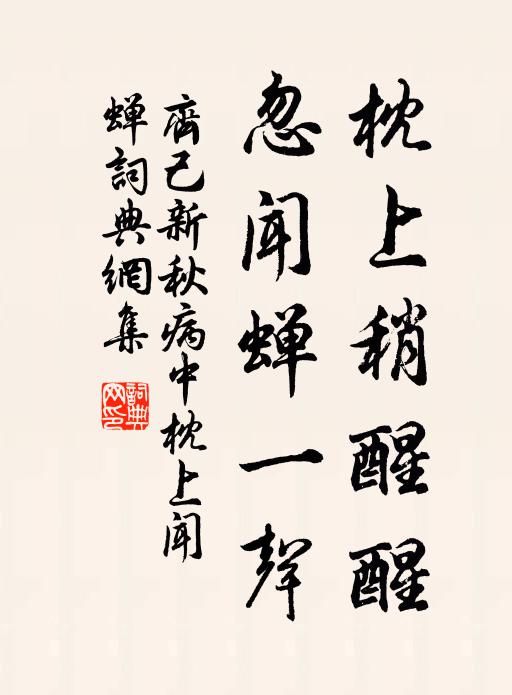 枕上稍醒醒
忽闻蝉一聲
齊己新秋病中枕上闻
蝉詞典網集
詞典網印